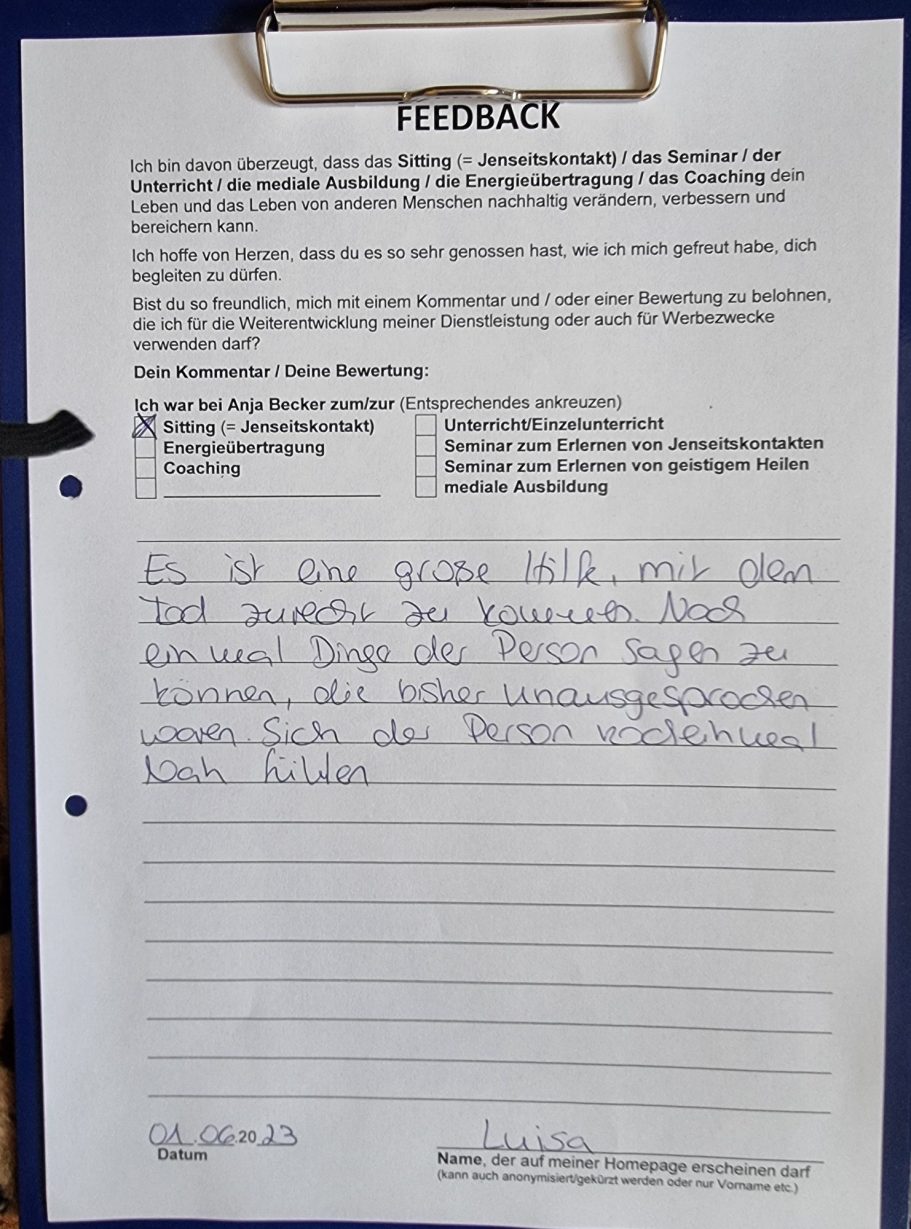 FEEDBACK
Ich bin davon überzeugt, dass das Sitting (= Jenseitskontakt) / das Seminar / der
Unterricht / die mediale Ausbildung / die Energieübertragung / das Coaching dein
Leben und das Leben von anderen Menschen nachhaltig verändern, verbessern und
bereichern kann.
Ich hoffe von Herzen, dass du es so sehr genossen hast, wie ich mich gefreut habe, dich
begleiten zu dürfen.
Bist du so freundlich, mich mit einem Kommentar und / oder einer Bewertung zu belohnen,
die ich für die Weiterentwicklung meiner Dienstleistung oder auch für Werbezwecke
verwenden darf?
Dein Kommentar / Deine Bewertung:
Ich war bei Anja Becker zum/zur (Entsprechendes ankreuzen)
Sitting (= Jenseitskontakt)
Energieübertragung
Coaching
Unterricht/Einzelunterricht
Seminar zum Erlernen von Jenseitskontakten
Seminar zum Erlernen von geistigem Heilen
mediale Ausbildung
Es ist eine große Hilfe, mit dem
Tod zurecht zu kommen. Noch
einmal Dinge der Person sagen zu
können, die bisher unausgesprochen
waren. Sich der Person nocheinmal
Nah fühlen
01.06.2023
Datum
Luisa
Name, der auf meiner Homepage erscheinen darf
(kann auch anonymisiert/gekürzt werden oder nur Vorname etc.)